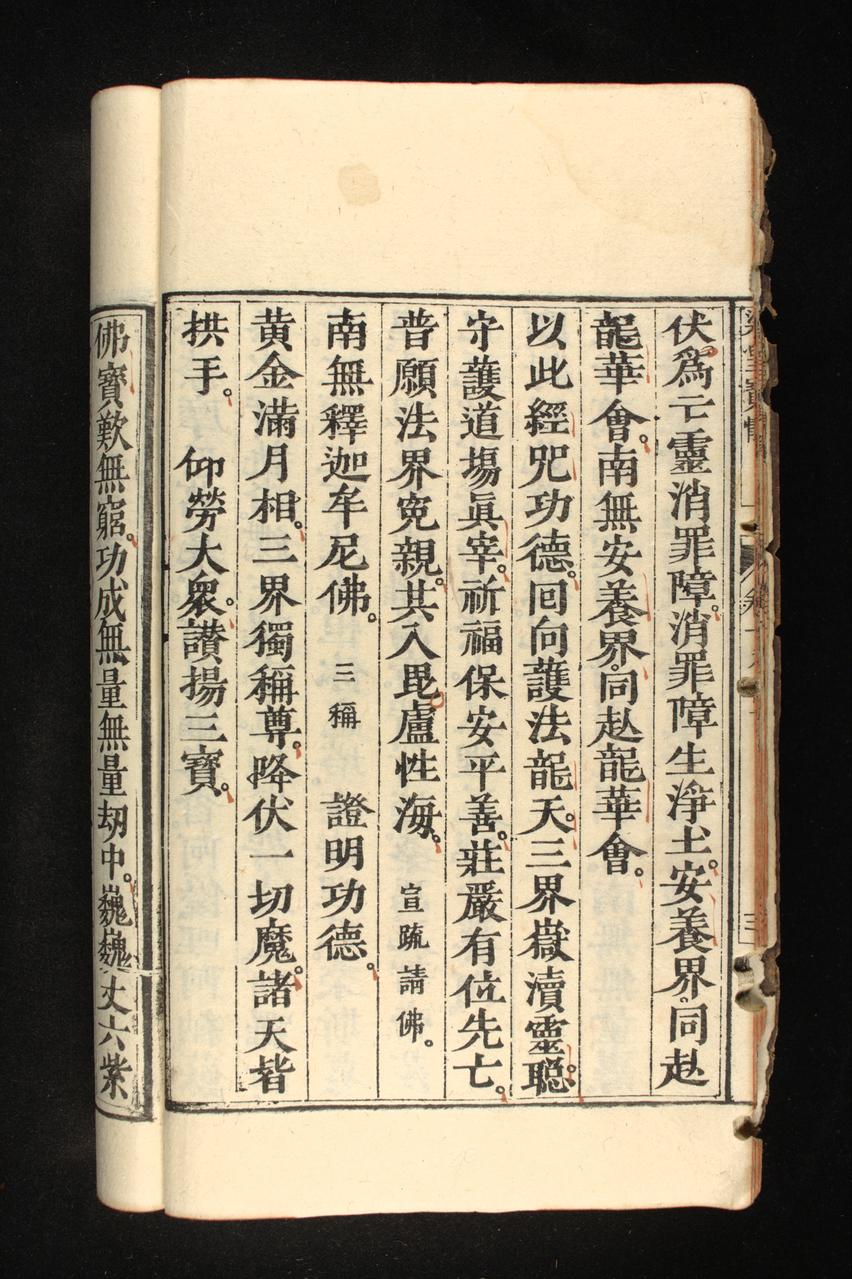 伏爲亡靈消罪障。消罪障生淨土。安養界。同赴
龍華會。南無安養界。同赴龍華會。
以此經咒功德。回向護法龍天。三界嶽瀆靈聰。
守護道塲眞宰。祈福保安平善。莊嚴有位先亡。
普願法界寃親。共入毘盧性海。宣疏請佛。
南無釋迦牟尼佛。三稱 證明功德。
黄金滿月相。三界獨稱尊。降伏一切魔。諸天皆
拱手。 仰勞大衆。讚揚三寶。
佛寶歎無窮。功成無量無量劫中。巍巍丈六紫